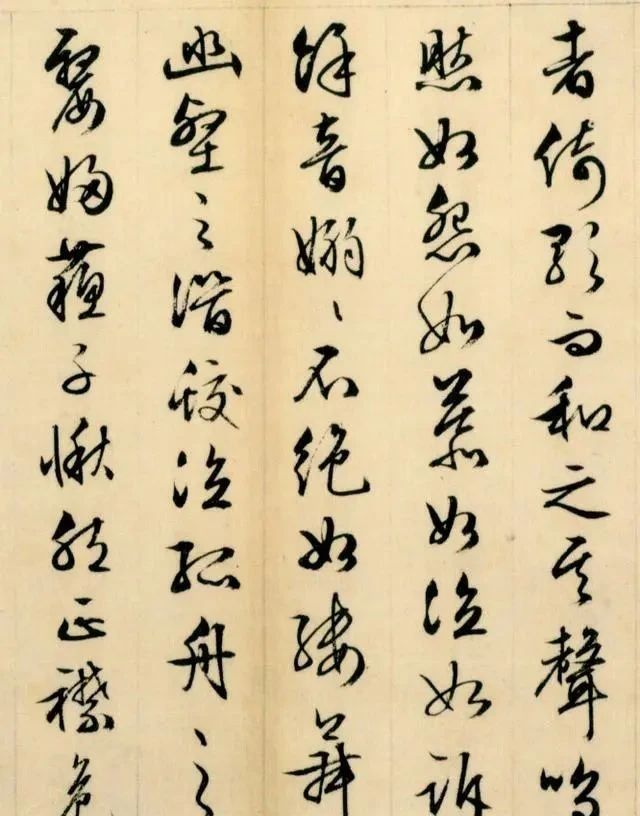 者倚歌而和之其聲嗚
然如怨如慕如泣如訴
餘音嫋〻不絕如縷舞
幽壑之潛蛟泣孤舟之
嫠婦蘇子愀然正襟危